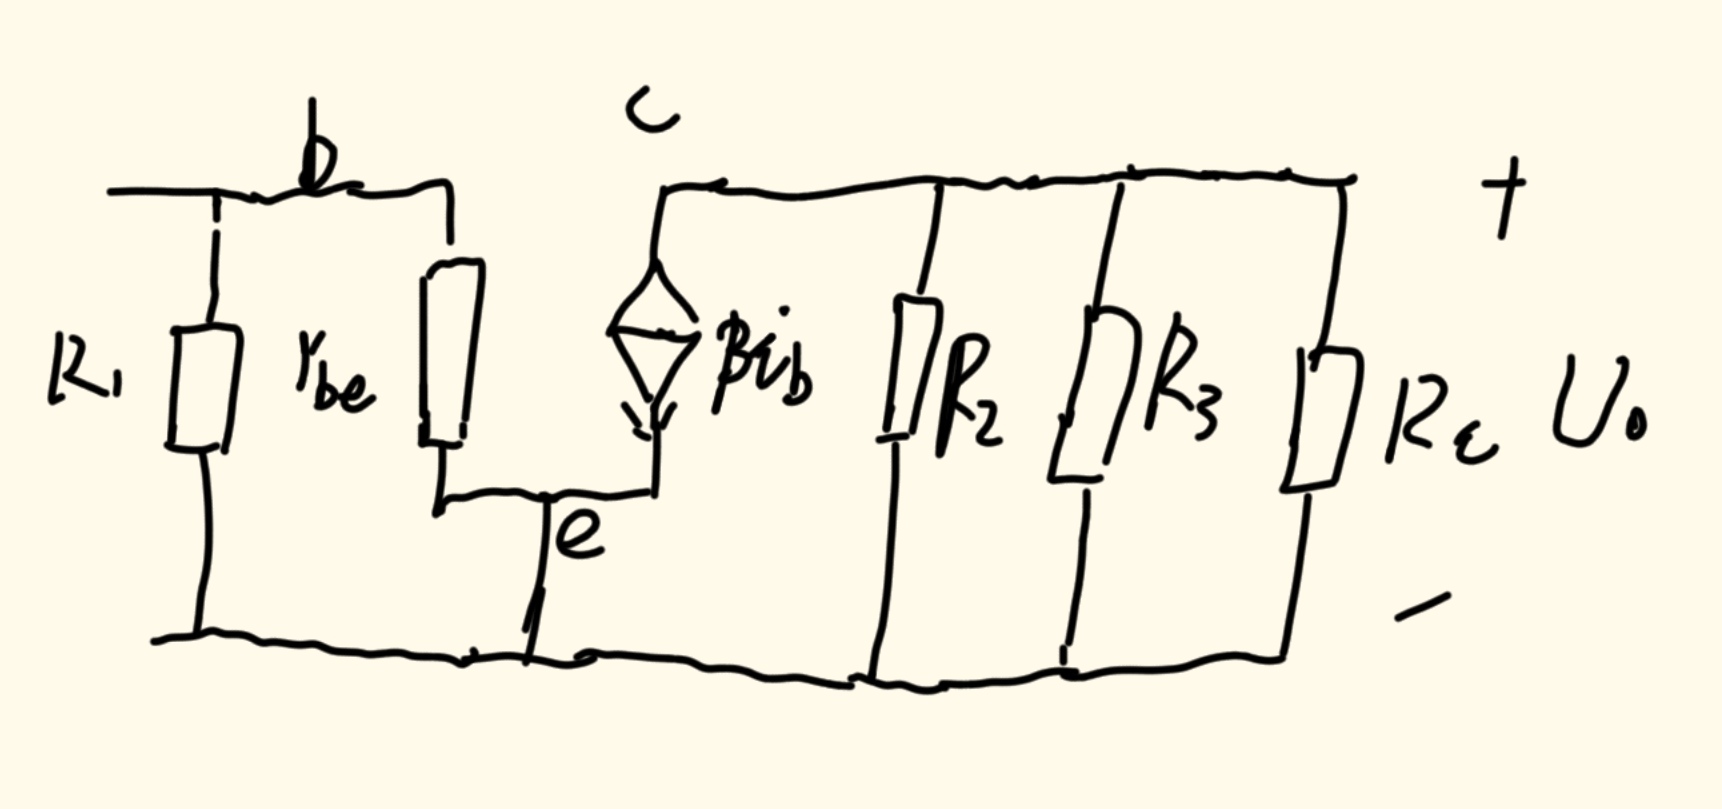 b
c
+
R₁
rbe
βib
R₂
R₃
Rc
U₀
e
−